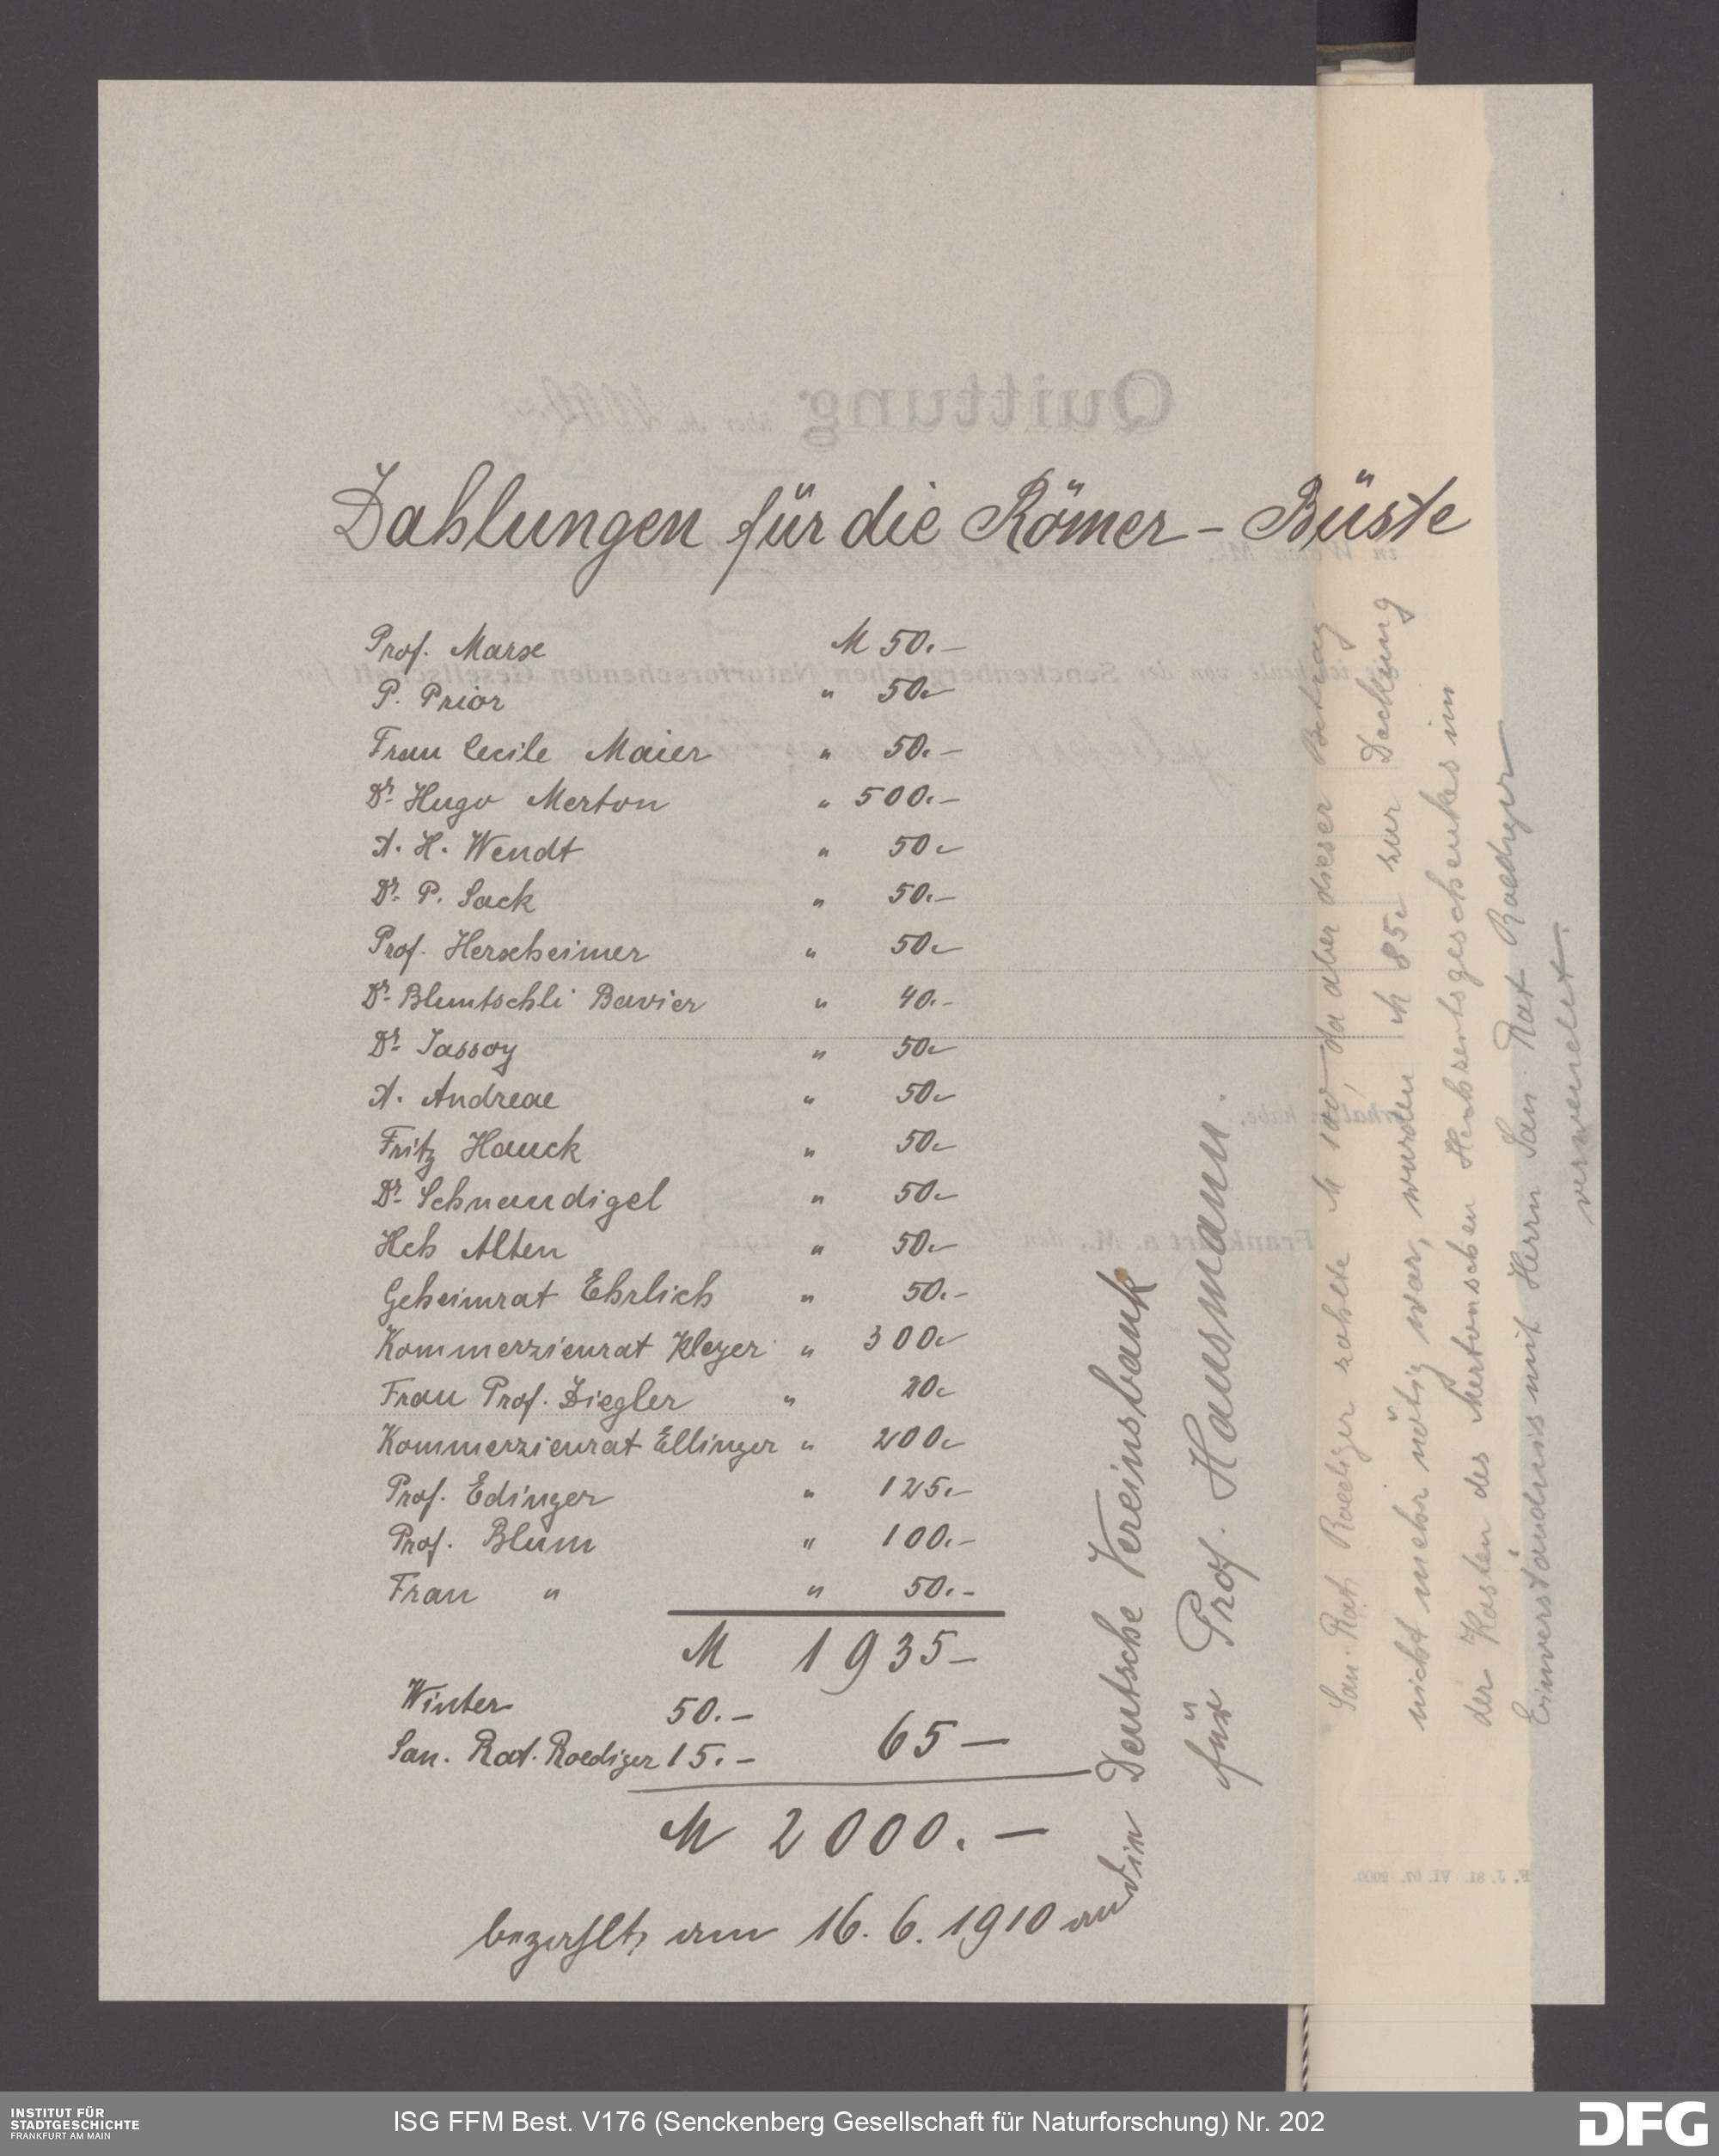 Zahlungen für die Römer-Büste
Prof. Marx M 50.-
P. Prior " 50.-
Frau Cecile Maier " 50.-
Dr. Hugo Merton " 500.-
A. H. Wendt " 50.-
Dr. P. Sack " 50.-
Prof. Herxheimer " 50.-
Dr. Bluntschli Bavier " 40.-
Dr. Jassoy " 50.-
A. Andreae " 50.-
Fritz Hauck " 50.-
Dr. Schnaudigel " 50.-
Hch Alten " 50.-
Geheimrat Ehrlich " 50.-
Kommerzienrat Kleyer " 300.-
Frau Prof. Ziegler " 20.-
Kommerzienrat Ellinger " 200.-
Prof. Edinger " 125.-
Prof. Blum " 100.-
Frau " " 50.-
M 1935-
Winter 50.-
San. Rat. Roediger 15.- 65-
M 2000.-
bezahlt am 16.6.1910 an die
Deutsche Vereinsbank
für Prof. Hausmann.
San. Rat Roediger zahlte M 100, da aber dieser Betrag
nicht mehr nötig war, wurden M 85.- zur Deckung
der Kosten des Mertonschen Hochzeitsgeschenkes im
Einverständnis mit Herrn San. Rat Roediger
verwendet.
Quittung über M.
Senckenbergischen Naturforschenden Gesellschaft für
erhalten habe.
Frankfurt a. M., den
F. J. 81. VI. 07. 2000.
INSTITUT FÜR
STADTGESCHICHTE
FRANKFURT AM MAIN
ISG FFM Best. V176 (Senckenberg Gesellschaft für Naturforschung) Nr. 202
DFG